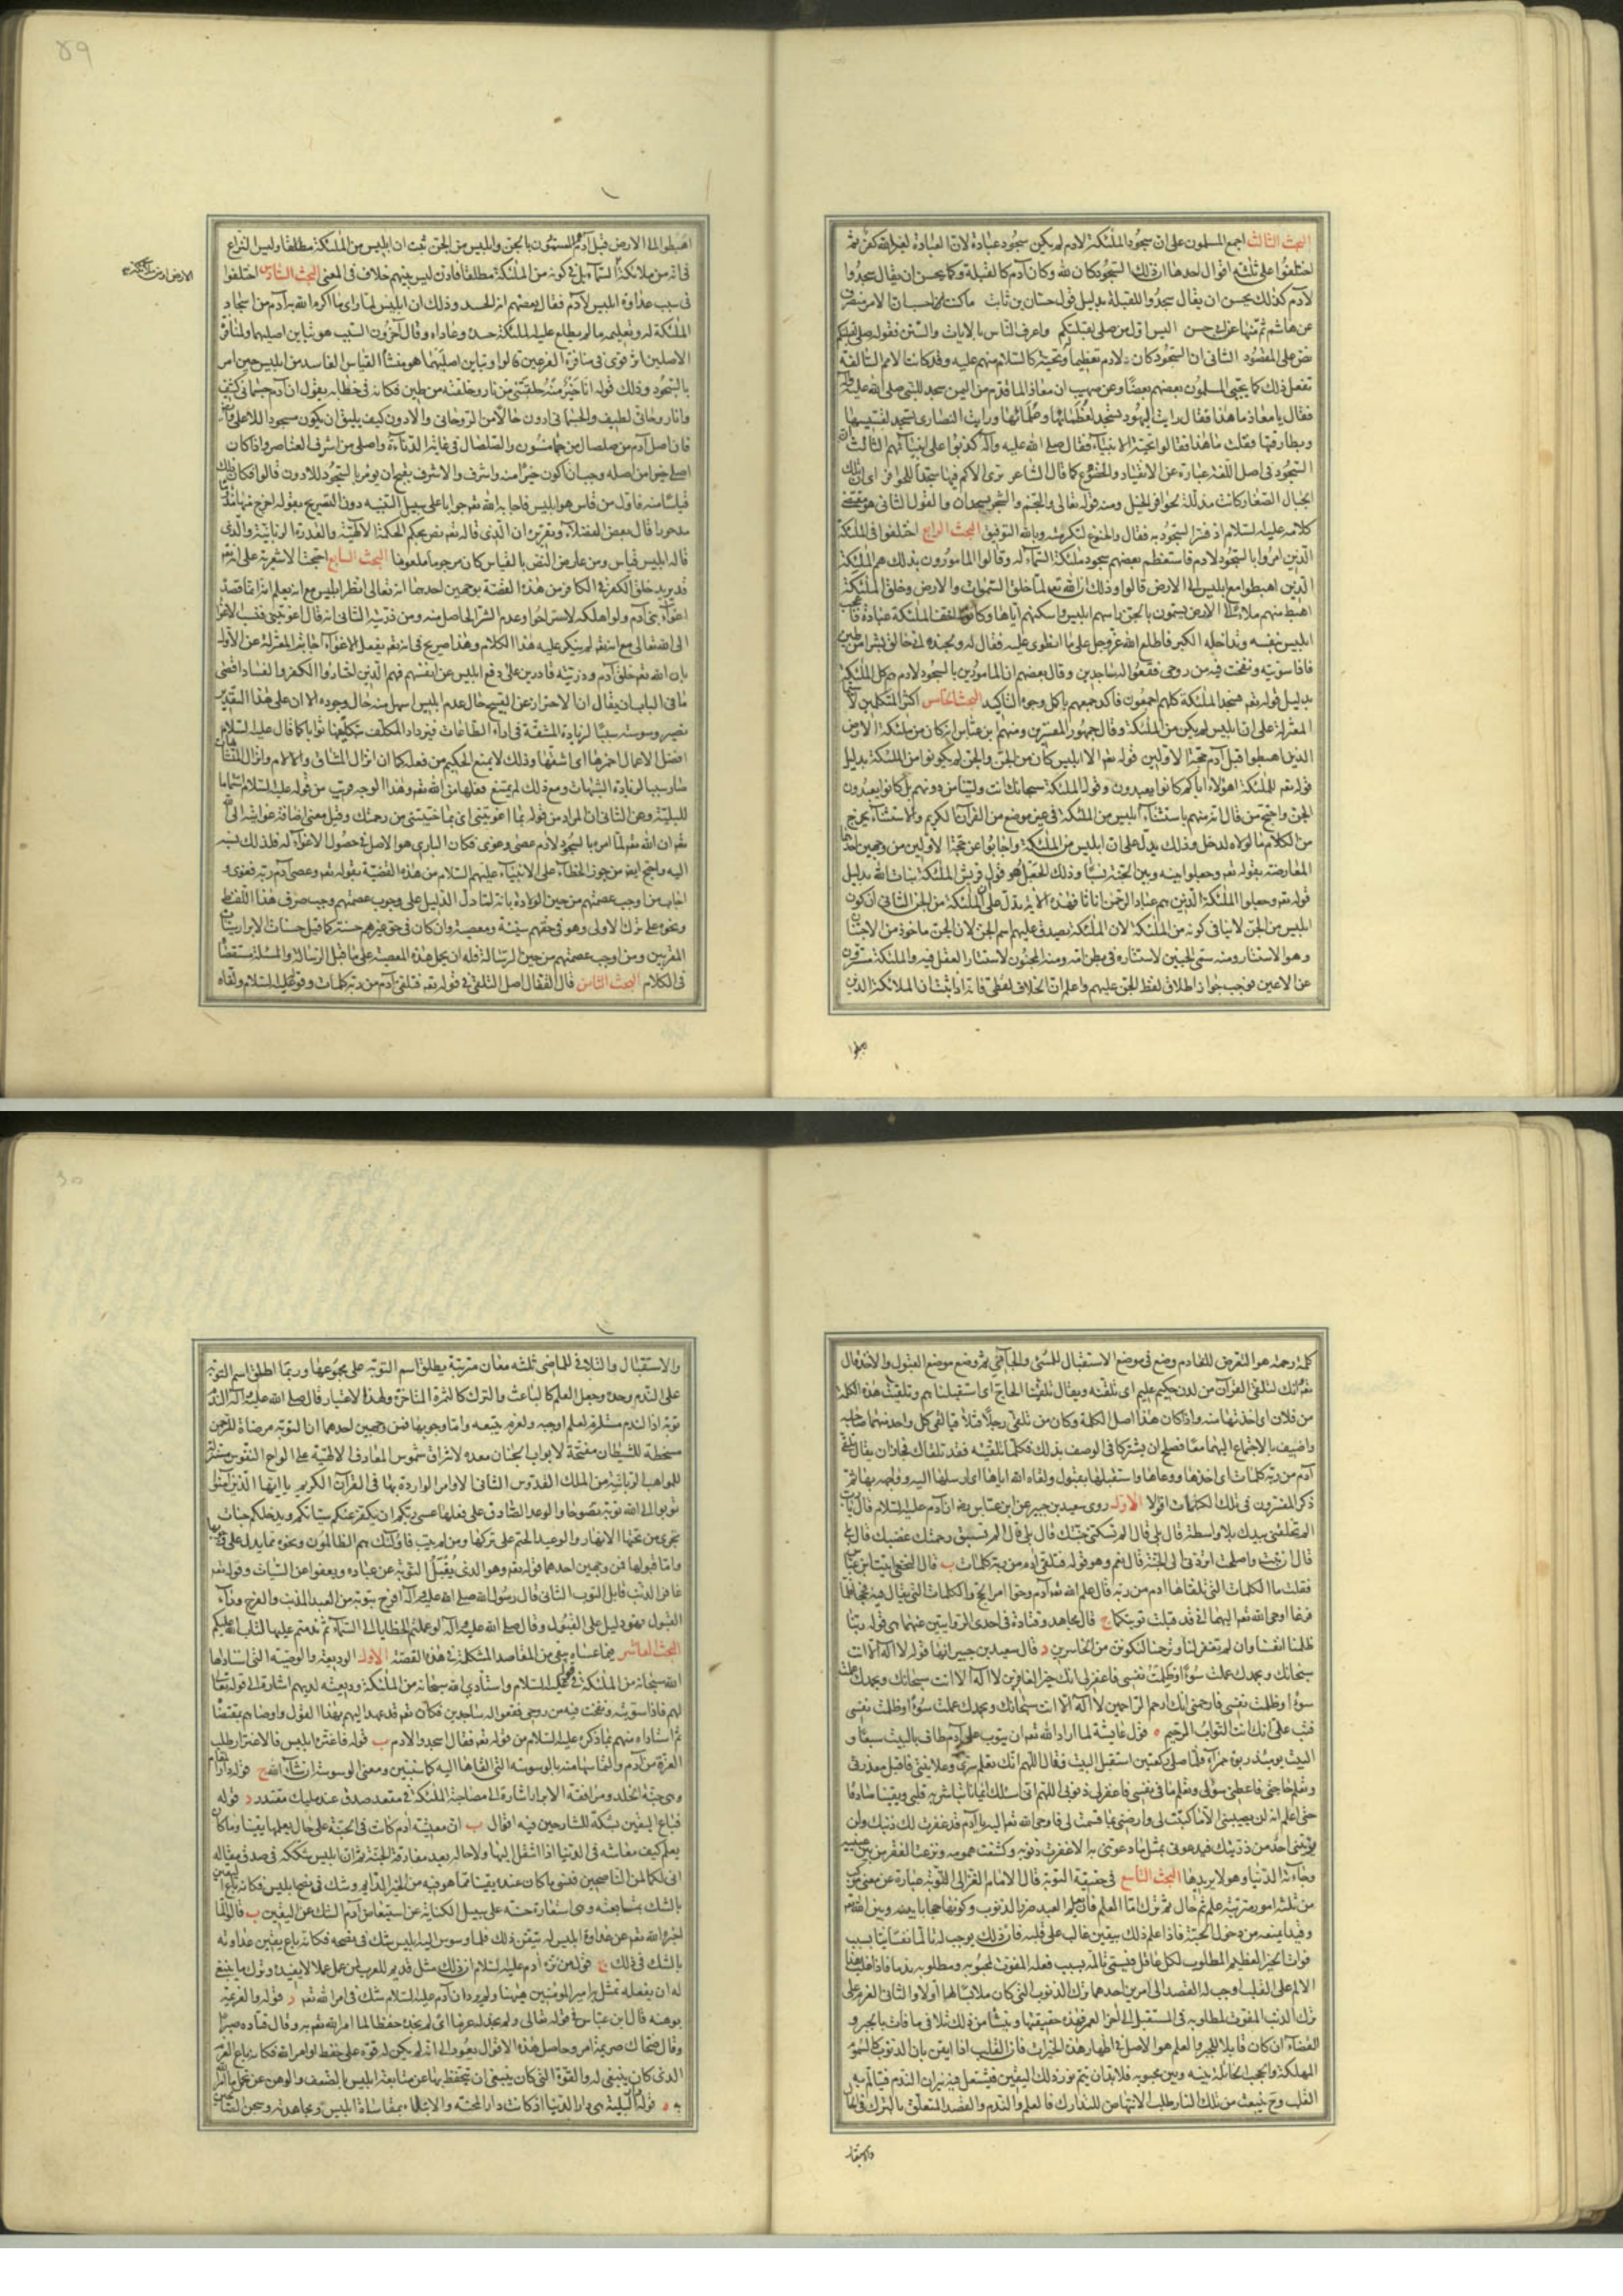 البحث الثالث اجمع المسلمون على ان سجود الملئكة لادم لم يكن سجود عبادة لان العبادة لغير الله كفر ثم
اختلفوا على ثلثة اقوال احدها ان ذلك السجود كان لله وكان آدم كالقبلة وكما يحسن ان يقال سجدوا
لادم كذلك يحسن ان يقال سجدوا للقبلة بدليل قول حسان بن ثابت ما كنت احسب ان الامر منصرف
عن هاشم ثم منها عن ابى حسن اليس اول من صلى بقبلتكم واعرف الناس بالايات والسنن فقوله صلى لقبلتكم
نص على المقصود الثانى ان السجود كان لادم تعظيما وتحية كالسلام منهم عليه وقد كانت الامم السالفة
تفعل ذلك كما يحيى المسلمون بعضهم بعضا وعن صهيب ان معاذ لما قدم من اليمن سجد للنبى صلى الله عليه وآله
فقال يا معاذ ما هذا فقال رايت اليهود تسجد لعظمائها وعلمائها ورايت النصارى تسجد لقسيسيها
وبطارقتها فقلت ما هذا فقالوا تحية الانبياء فقال صلى الله عليه وآله كذبوا على انبيائهم الثالث ان
السجود فى اصل اللغة عبارة عن الانقياد والخضوع كما قال الشاعر ترى الاكم فيها سجدا للحوافر اى ان تلك
الجبال الصغار كانت مذللة لحوافر الخيل ومنه قوله تعالى والنجم والشجر يسجدان والقول الثانى هو مقتضى
كلامه عليه السلام اذ فسر السجود به فقال والخنوع لتكرمته وبالله التوفيق البحث الرابع اختلفوا فى الملئكة
الذين امروا بالسجود لادم فاستعظم بعضهم سجود ملئكة السماء له وقالوا المامورون بذلك هم الملئكة
الذين اهبطوا مع ابليس الى الارض قالوا وذلك ان الله تعالى لما خلق السموات والارض وخلق الملئكة
ابليس بنفسه وتداخله الكبر فاطلع الله عز وجل على ما انطوى عليه فقال له ولجنده انى خالق بشرا من طين
فاذا سويته ونفخت فيه من روحى فقعوا له ساجدين وقال بعضهم ان المامورين بالسجود لادم هم كل الملئكة
بدليل قوله تعم فسجد الملئكة كلهم اجمعون فاكد جميعهم باكمل وجوه التاكيد البحث الخامس اكثر المتكلمين لا سيما
المعتزلة على ان ابليس لم يكن من الملئكة وقال جمهور المفسرين ومنهم ابن عباس انه كان من ملئكة الارض
الذين اهبطوا قبل آدم حجة الاولين قوله تعم الا ابليس كان من الجن والجن لم يكونوا من الملئكة بدليل
قوله تعم للملئكة اهؤلاء اياكم كانوا يعبدون وقول الملئكة سبحانك انت ولينا من دونهم بل كانوا يعبدون
الجن واحتج من قال انه منهم باستثناء ابليس من الملئكة فى غير موضع من القرآن الكريم والاستثناء يخرج
من الكلام ما لولاه لدخل وذلك يدل على ان ابليس من الملئكة واجابوا عن حجة الاولين من وجهين احدهما
المعارضة بقوله تعم وجعلوا بينه وبين الجنة نسبا وذلك الجعل هو قول قريش الملئكة بنات الله بدليل
قوله تعم وجعلوا الملئكة الذين هم عباد الرحمن اناثا فهذه الاية تدل على ان الملئكة من الجن الثانى ان كون
ابليس من الجن لا ينافى كونه من الملئكة لان الملئكة يصدق عليهم اسم الجن لان الجن ماخوذ من الاجتنان
وهو الاستتار ومنه سمى الجنين لاستتاره فى بطن امه ومنه المجنون لاستتار العقل فيه والملئكة مستترون
عن الاعين فوجب جواز اطلاق لفظ الجن عليهم واعلم ان الخلاف لفظى فانه اذا ثبت ان الملائكة الذين
اهبطوا الى الارض قبل آدم هم المسمون بالجن وابليس من الجن ثبت ان ابليس من الملئكة مطلقا وليس النزاع
فى انه من ملائكة السماء بل فى كونه من الملئكة مطلقا فاذن ليس بينهم خلاف فى المعنى البحث السادس اختلفوا
فى سبب عداوة ابليس لآدم فقال بعضهم انه الحسد وذلك ان ابليس لما راى ما اكرم الله به آدم من اسجاد
الملئكة له وتعليمه ما لم يطلع عليه الملئكة حسده وعاداه وقال آخرون السبب هو تباين اصليهما ولمنافرة
الاصلين اثر قوى فى منافرة الفرعين قالوا وتباين اصليهما هو منشأ القياس الفاسد من ابليس حين امر
بالسجود وذلك قوله انا خير منه خلقتنى من نار وخلقته من طين فكانه فى خطابه يقول ان آدم جسمانى كثيف
وانا روحانى لطيف والجسمانى ادون حالا من الروحانى والادون كيف يليق ان يكون مسجودا للاعلى وايضا
فان اصل آدم من صلصال من حمأ مسنون والصلصال فى غاية الدناءة واصلى من اشرف العناصر واذا كان
اصلى خيرا من اصله وجب ان اكون خيرا منه واشرف والاشرف يقبح ان يؤمر بالسجود للادون قالوا فكان ذلك
قياسا منه فاول من قاس هو ابليس فاجابه الله تعم جوابا على سبيل التنبيه دون التصريح بقوله اخرج منها مذؤما
مدحورا قال بعض الفضلاء وتقريره ان الذى قاله تعم نص بحكم الحكمة الالهية والقدرة الربانية والذى
قاله ابليس قياس ومن عارض النص بالقياس كان مرجوما ملعونا البحث السابع احتجت الاشعرية على انه تعم
قد يريد خلق الكفر فى الكافر من هذه القصة بوجهين احدهما انه تعالى انظر ابليس مع انه يعلم انه انما قصد
اغواء بنى آدم ولو اهلكه لاستراحوا وعدم الشر الحاصل منه ومن ذريته الثانى انه قال اغويتنى فنسب الاغواء
الى الله تعالى مع انه تعم لم ينكر عليه هذا الكلام وهذا صريح فى انه تعم يفعل الاغواء اجابت المعتزلة عن الاول
بان الله تعم خلق آدم وذريته قادرين على دفع ابليس عن انفسهم فهم الذين اختاروا الكفر والفساد اقصى
ما فى الباب ان يقال ان الاحتراز عن القبيح حال عدم ابليس اسهل منه حال وجوده الا ان على هذا التقدير
تصير وسوسته سببا لزيادة المشقة فى اداء الطاعات فيزداد المكلف بتكلفها ثوابا كما قال عليه السلام
افضل الاعمال احمزها اى اشقها وذلك لا يمنع الحكيم من فعله كما ان انزال المشاق والالام وانزال المتشابهات
صار سببا لزيادة الشبهات ومع ذلك لم يمتنع فعلها من الله تعم وهذا الوجه قريب من قوله عليه السلام استتماما
للبلية وعن الثانى ان المراد من قوله بما اغويتنى اى بما خيبتنى من رحمتك وقيل معنى اضافة غوايته الى الله
تعم ان الله تعم لما امره بالسجود لادم عصى وغوى فكان البارى هو الاصل فى حصول الاغواء له فلذلك نسبه
اليه واحتج ايضا من جوز الخطاء على الانبياء عليهم السلام من هذه القضية بقوله تعم وعصى آدم ربه فغوى و
اجاب من اوجب عصمتهم من حين الولادة بانه لما دل الدليل على وجوب عصمتهم وجب صرف هذا اللفظ
ونحوه على ترك الاولى وهو فى حقهم سيئة ومعصية وان كان فى حق غيرهم حسنة كما قيل حسنات الابرار سيئات
المقربين ومن اوجب عصمتهم من حين الرسالة فله ان يحمل هذه المعصية على ما قبل الرسالة والمسئلة مستقصاة
فى الكلام البحث الثامن قال القفال اصل التلقى فى قوله تعم فتلقى آدم من ربه كلمات وقوله عليه السلام ولقاه
كلمة رحمته هو التعرض للقادم وضع فى موضع الاستقبال للمسئ والجافى ثم وضع موضع القبول والاخذ قال
تعم وانك لتلقى القرآن من لدن حكيم عليم اى تلقنه ويقال تلقينا الحاج اى استقبلناهم وتلقيت هذه الكلمة
من فلان اى اخذتها منه واذا كان هذا اصل الكلمة وكان من تلقى رجلا فتلاقيا لقى كل واحد منهما صاحبه
واضيف بالاجتماع اليهما معا فصلح ان يشتركا فى الوصف بذلك فكلما تلقيته فقد تلقاك فجاز ان يقال تلقى
آدم من ربه كلمات اى اخذها ووعاها واستقبلها بقبول ولقاه الله اياها اى ارسلها اليه وواجهه بها ثم
ذكر المفسرون فى تلك الكلمات اقوالا الاول روى سعيد بن جبير عن ابن عباس رضه ان آدم عليه السلام قال يا رب
الم تخلقنى بيدك بلا واسطة قال بلى قال الم تسكنى جنتك قال بلى قال الم تسبق رحمتك غضبك قال بلى
قال ان تبت واصلحت اتردنى الى الجنة قال نعم وهو قوله فتلقى آدم من ربه كلمات ب قال النخعى اتيت ابن عباس
فقلت ما الكلمات التى تلقاها ادم من ربه قال علم الله تعم آدم وحوا امر الحج والكلمات التى يقال فيه فحجا فلما
فرغا اوحى الله تعم اليهما انى قد قبلت توبتكما ج قال مجاهد وقتادة فى احدى الروايتين عنهما هى قوله ربنا
ظلمنا انفسنا وان لم تغفر لنا وترحمنا لنكونن من الخاسرين د قال سعيد بن جبير انها قوله لا اله الا انت
سبحانك وبحمدك عملت سوءا وظلمت نفسى فاغفر لى انك خير الغافرين لا اله الا انت سبحانك وبحمدك عملت
سوءا وظلمت نفسى فارحمنى انك ارحم الراحمين لا اله الا انت سبحانك وبحمدك عملت سوءا وظلمت نفسى
فتب على انك انت التواب الرحيم ه قول عايشة لما اراد الله تعم ان يتوب على آدم طاف بالبيت سبعا و
البيت يومئذ ربوة حمراء فلما صلى ركعتين استقبل البيت فقال اللهم انك تعلم سرى وعلانيتى فاقبل معذرتى
وتعلم حاجتى فاعطنى سؤلى وتعلم ما فى نفسى فاغفر لى ذنوبى اللهم انى اسئلك ايمانا تباشر به قلبى ويقينا صادقا
حتى اعلم انه لن يصيبنى الا ما كتبت لى وارضنى بما قسمت لى فاوحى الله تعم اليه يا آدم قد غفرت لك ذنبك ولن
ياتينى احد من ذريتك فيدعونى بمثل ما دعوتنى به الا غفرت ذنوبه وكشفت همومه ونزعت الفقر من بين عينيه
وجاءته الدنيا وهو لا يريدها البحث التاسع فى حقيقة التوبة قال الامام الغزالى التوبة عبارة عن معنى مركب
من ثلثة امور مترتبة علم ثم حال ثم ترك اما العلم فان يعلم العبد ضرر الذنوب وكونها حجابا بينه وبين الله تعم
وقيدا يمنعه من دخول الجنة فاذا علم ذلك بيقين غالب على قلبه فان ذلك يوجب له تالما نفسانيا بسبب
فوات الخير العظيم المطلوب لكل عاقل فيسمى تالمه بسبب فعله المفوت لمحبوبه ومطلوبه ندما فاذا غلب هذا
الالم على القلب اوجب له القصد الى امرين احدهما ترك الذنوب التى كان ملابسا لها اولا والثانى العزم على
ترك الذنب المفوت لمطلوبه فى المستقبل الى آخر العمر فهذه حقيقتها وينشأ من ذلك تلافى ما فات بالجبر و
القضاء ان كان قابلا للجبر والعلم هو الاصل فى اظهار هذه الخيرات فان القلب اذا ايقن بان الذنوب كالسموم
المهلكة والحجب الحائلة بينه وبين محبوبه فلا بد ان يتم نور ذلك اليقين فتشتعل فيه نيران الندم فيتالم به
القلب وح ينبعث من تلك النار طلب الانتهاض للتدارك فالعلم والندم والقصد المتعلق بالترك فى الحال
والاستقبال والتلافى للماضى ثلثة معان مترتبة يطلق اسم التوبة على مجموعها وربما اطلق اسم التوبة
على الندم وحده وجعل العلم كالباعث والترك كالثمرة المتاخرة ولهذا الاعتبار قال صلى الله عليه وآله الندم
توبة اذ الندم مستلزم لعلم اوجبه ولعزم يتبعه واما وجوبها فمن وجهين احدهما ان التوبة مرضاة للرحمن
مسخطة للشيطان مفتحة لابواب الجنان معدة لاشراق شموس المعارف الالهية على الواح النفوس مستنزلة
للمواهب الربانية من الملك القدوس الثانى الاوامر الواردة بها فى القرآن الكريم يا ايها الذين آمنوا
توبوا الى الله توبة نصوحا والوعد الصادق على فعلها عسى ربكم ان يكفر عنكم سيئاتكم ويدخلكم جنات
تجرى من تحتها الانهار والوعيد الحتم على تركها ومن لم يتب فاولئك هم الظالمون ونحوه مما يدل على وجوبها
واما قبولها فمن وجهين احدهما قوله تعم وهو الذى يقبل التوبة عن عباده ويعفوا عن السيئات وقوله تعم
غافر الذنب قابل التوب الثانى قال رسول الله صلى الله عليه وآله افرح بتوبة من العبد المذنب والفرح وراء
القبول فهو دليل على القبول وقال صلى الله عليه وآله لو عملتم الخطايا الى السماء ثم ندمتم عليها لتاب الله عليكم
البحث العاشر فيما عساه يبقى من المقاصد المشكلة فى هذه القصة الاول الوديعة والوصية التى استاداها
الله سبحانه من الملئكة فى قوله عليه السلام واستادى الله سبحانه من الملئكة وديعته لديهم اشارة الى قوله تعالى
لهم فاذا سويته ونفخت فيه من روحى فقعوا له ساجدين فكان تعم قد عهد اليهم بهذا القول واوصاهم بمقتضاه
ثم استاداه منهم بما ذكره عليه السلام من قوله تعم فقال اسجدوا لادم ب قوله فاغتره ابليس فالاغترار طلب
الغرة من آدم والتماسها منه بالوسوسة التى القاها اليه كما سنبين ومعنى الوسوسة ان شاء الله ج قوله دار المقام
وهى جنة الخلد ومرافقة الابرار اشارة الى مصاحبة الملئكة فى مقعد صدق عند مليك مقتدر د قوله
فباع اليقين بشكه للشارحين فيه اقوال ان معيشة ادم كانت فى الجنة على حال يعلمها يقينا وما كان
يعلم كيف معاشه فى الدنيا اذا انتقل اليها ولا حاله بعد مفارقة الجنة ثم ان ابليس شككه فى صدق مقاله
انى لكما لمن الناصحين فنسى ما كان عنده يقينا مما هو فيه من الخير الدايم وشك فى نصح ابليس فكانه باع اليقين
بالشك بمتابعته وهى استعارة حسنة على سبيل الكناية عن استيعاض آدم الشك عن اليقين ب قالوا لما
اخبره الله تعم عن عداوة ابليس له تيقن ذلك فلما وسوس اليه ابليس شك فى نصحه فكانه باع يقين عداوته
بالشك فى ذلك ج قول من نزه ادم عليه السلام ان ذلك مثل قديم للعرب لمن عمل عملا لا يفيده وترك ما ينبغى
له ان يفعله تمثل به امير المؤمنين هيهنا ولم يرد ان آدم عليه السلام شك فى امر الله تعم د قوله والعزيمة
بوهنه قال ابن عباس فى قوله تعالى ولم نجد له عزما اى لم نجد حفظا لما امر الله تعم به وقال قتادة صبرا
وقال ضحاك صريمة امر وحاصل هذه الاقوال يعود الى انه لم يكن له قوة على حفظ اوامر الله فكانه باع العزم
الذى كان ينبغى له والقوة التى كان ينبغى ان يتحفظ بها عن متابعة ابليس بالضعف والوهن عن تحمل ما امر الله
به ه قوله دار البلية هى دار الدنيا اذ كانت دار المحنة والابتلاء بمقاساة ابليس ومجاهدته وسجن الصالحين